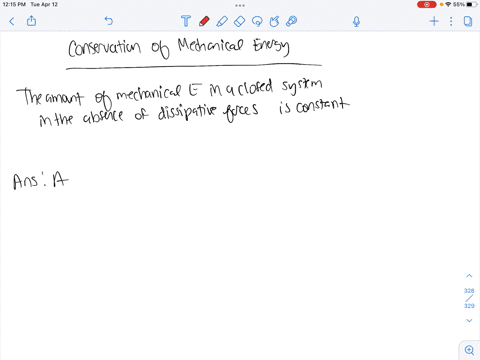 12:15 PM Tue Apr 12
55%
Conservation of Mechanical Energy
The amount of mechanical E in a closed system
in the absence of dissipative forces is constant
Ans: A
328
329